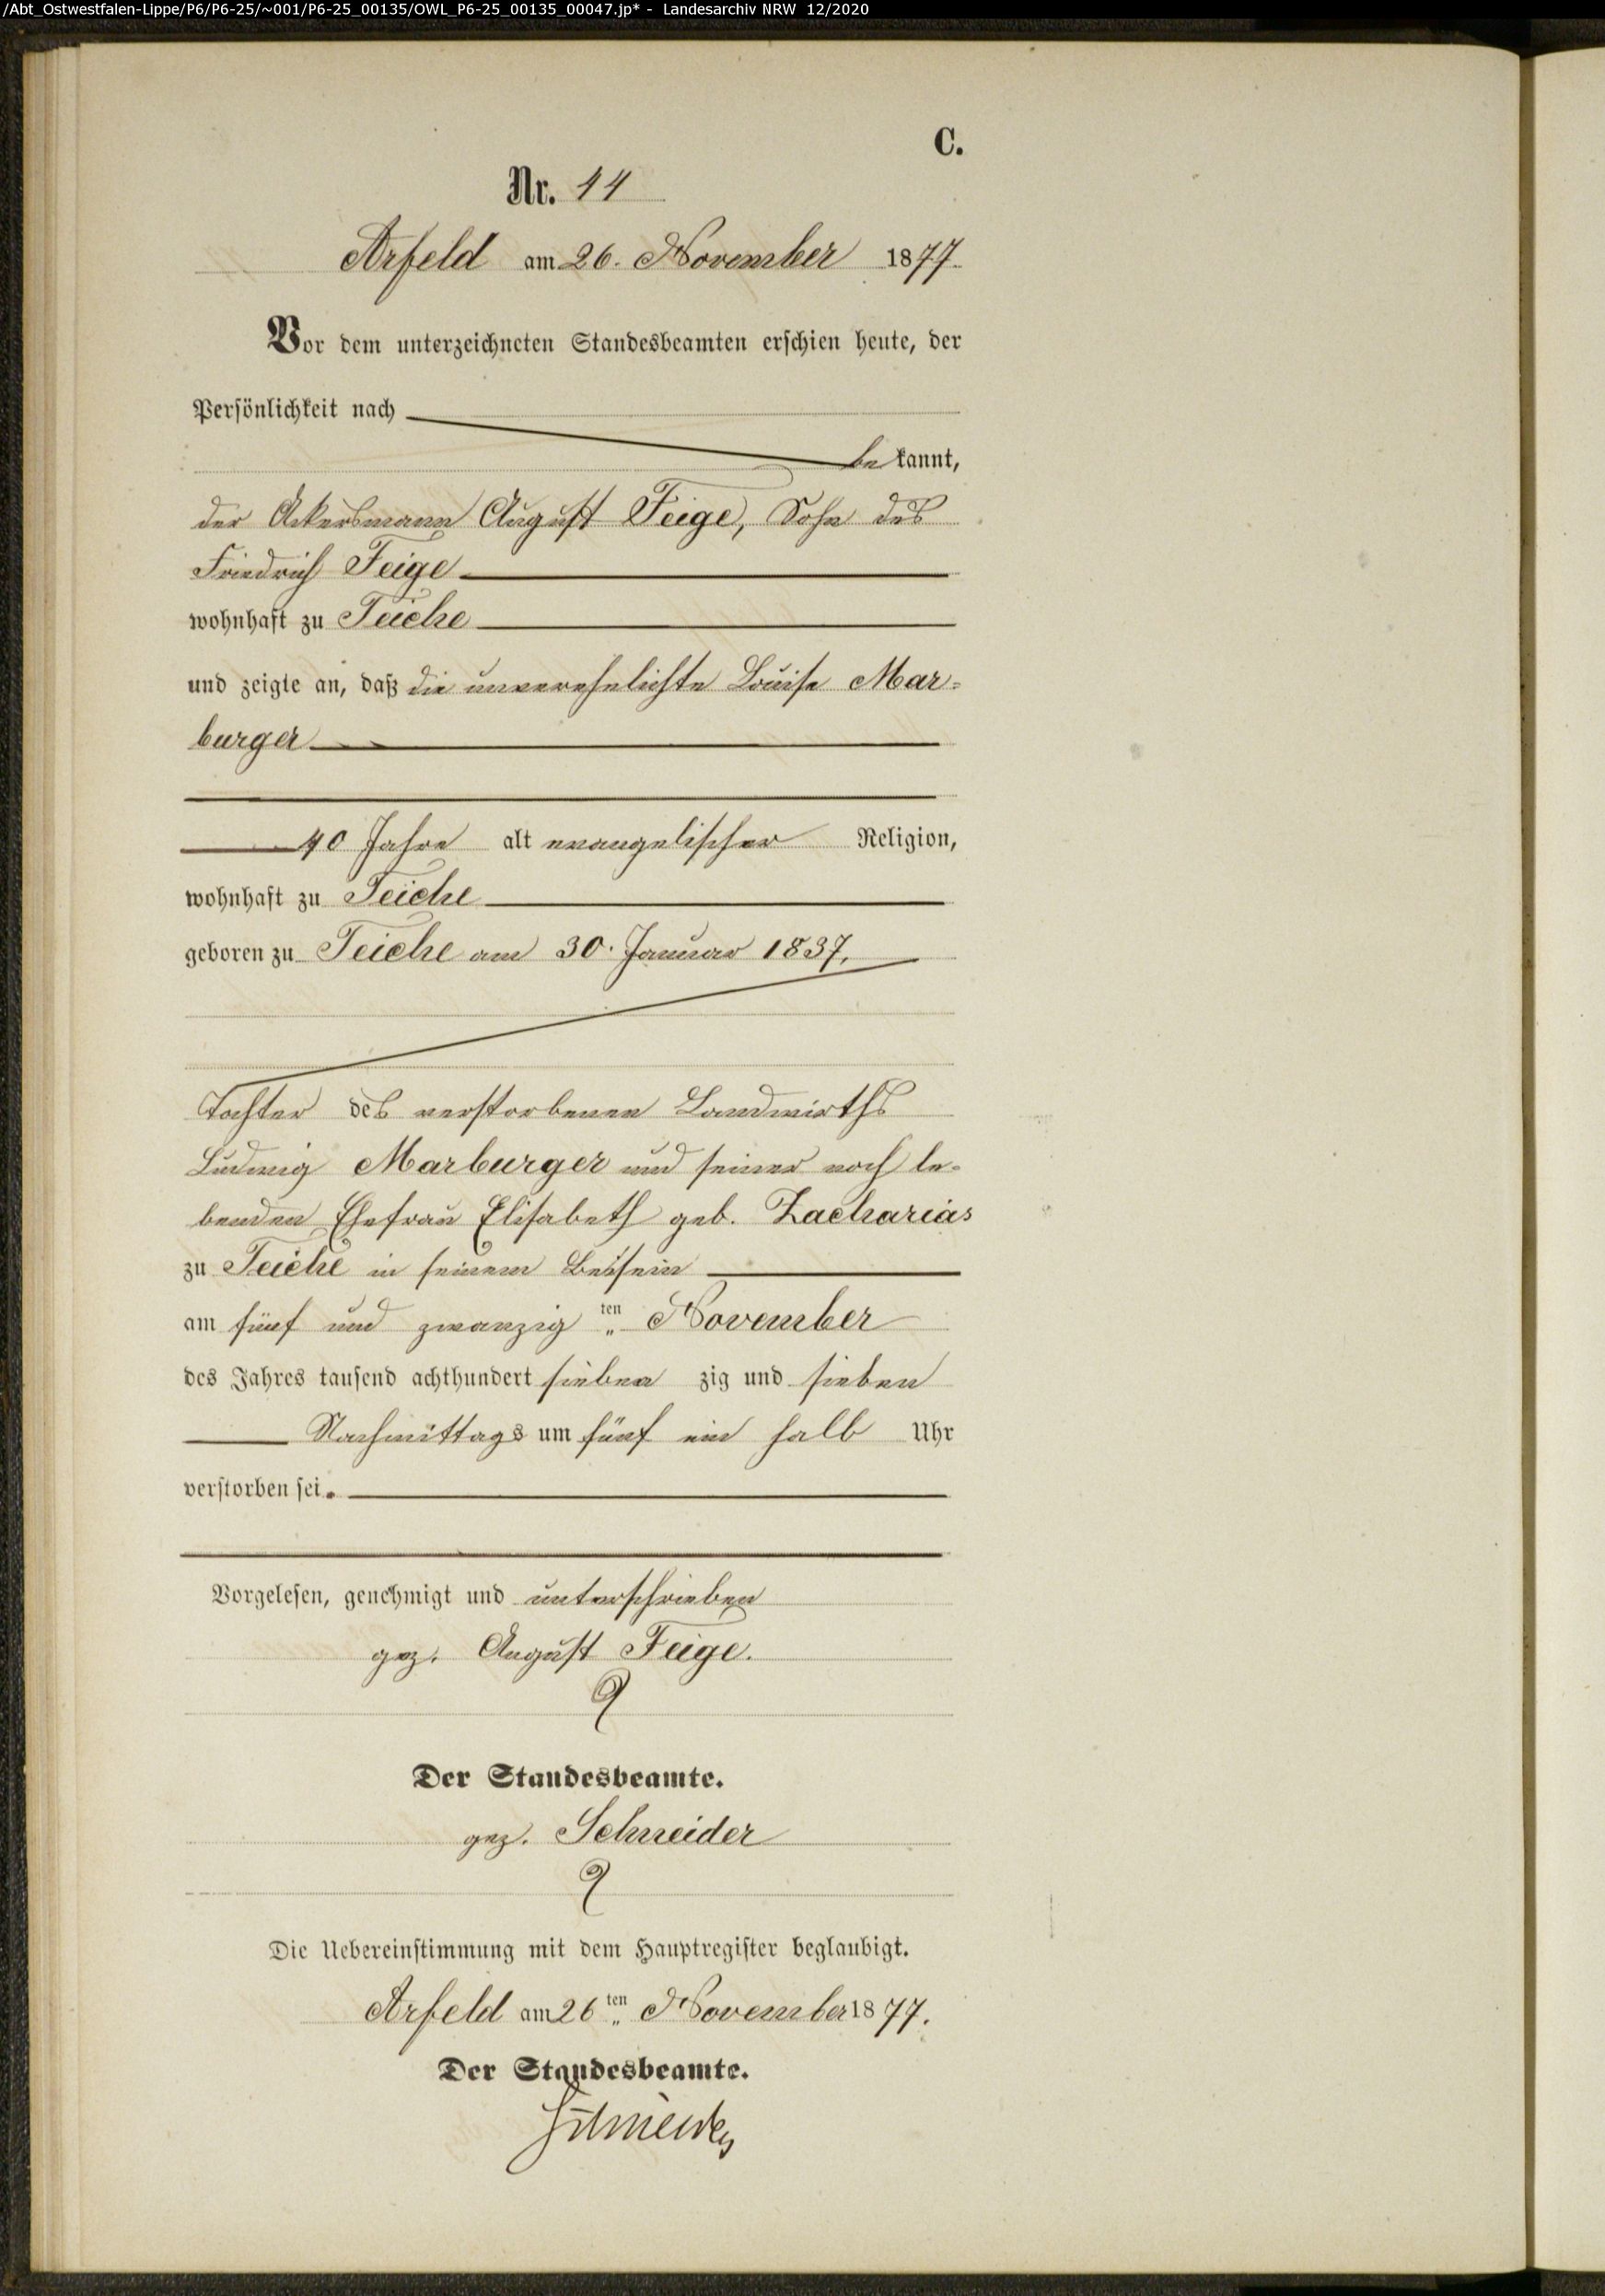 /Abt_Ostwestfalen-Lippe/P6/P6-25/~001/P6-25_00135/OWL_P6-25_00135_00047.jp* - Landesarchiv NRW 12/2020
C.
Nr. 44
Arfeld am 26. November 1877.
Vor dem unterzeichneten Standesbeamten erschien heute, der
Persönlichkeit nach
bekannt,
der Ackersmann August Feige, Sohn des
Friedrich Feige
wohnhaft zu Teiche
und zeigte an, daß die unverehelichte Louise Mar-
burger
40 Jahre alt evangelischer Religion,
wohnhaft zu Teiche
geboren zu Teiche am 30. Januar 1837,
Tochter des verstorbenen Landwirths
Ludwig Marburger und seiner noch le-
benden Ehefrau Elisabeth geb. Zacharias
zu Teiche in seinem Beisein
am fünf und zwanzig ten November
des Jahres tausend achthundert sieben zig und sieben
Nachmittags um fünf ein halb Uhr
verstorben sei.
Vorgelesen, genehmigt und unterschrieben
gez. August Feige.
Der Standesbeamte.
gez. Schneider
Die Uebereinstimmung mit dem Hauptregister beglaubigt.
Arfeld am 26ten November 1877.
Der Standesbeamte.
Schneider